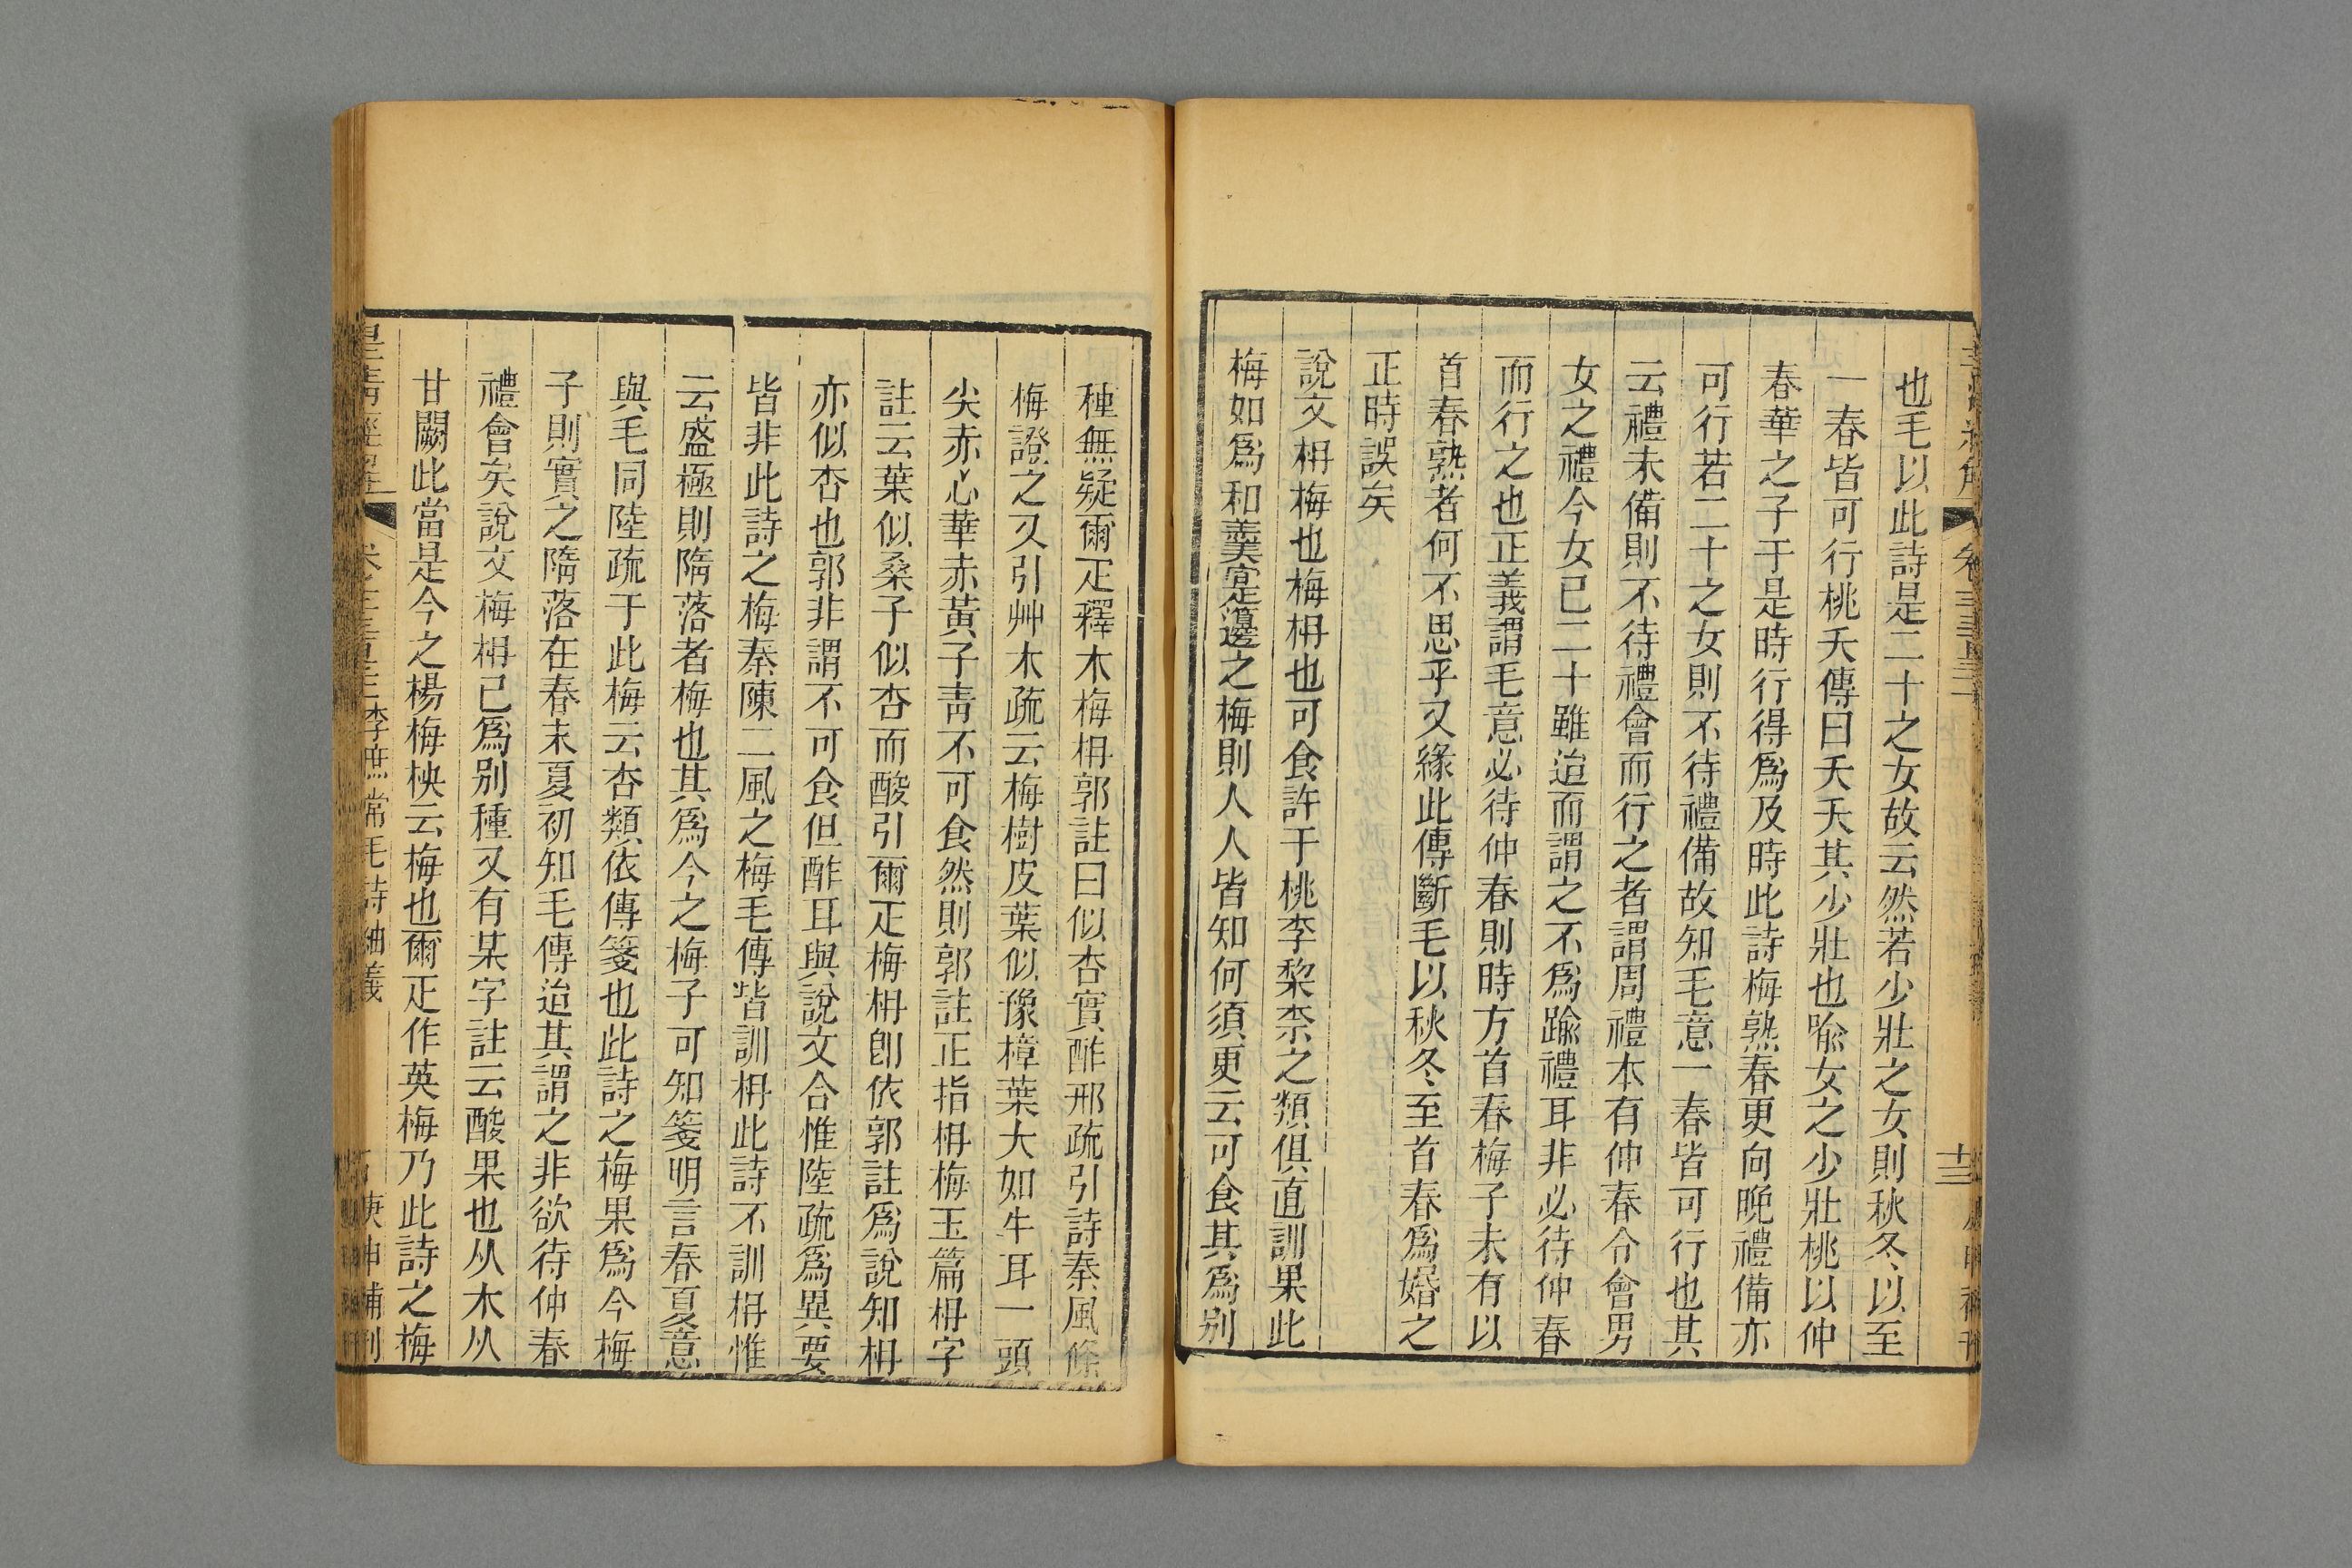 也毛以此詩是二十之女故云然若少壯之女則秋冬以至
一春皆可行桃夭傳曰夭夭其少壯也喻女之少壯桃以仲
春華之子于是時行得爲及時此詩梅熟春更向晚禮備亦
可行若二十之女則不待禮備故知毛意一春皆可行也其
云禮未備則不待禮會而行之者謂周禮本有仲春令會男
女之禮今女已二十雖迨而謂之不爲踰禮耳非必待仲春
而行之也正義謂毛意必待仲春則時方首春梅子未有以
首春熟者何不思乎又緣此傳斷毛以秋冬至首春爲婚之
正時誤矣
說文枏梅也梅枏也可食許于桃李棃柰之類俱直訓果此
梅如爲和羹𡩋籩之梅則人人皆知何須更云可食其爲別
種無疑爾疋釋木梅枏郭註曰似杏實酢邢疏引詩秦風條
梅證之又引艸木疏云梅樹皮葉似豫樟葉大如牛耳一頭
尖赤心華赤黃子靑不可食然則郭註正指枏梅玉篇枏字
註云葉似桑子似杏而酸引爾疋梅枏卽依郭註爲說知枏
亦似杏也郭非謂不可食但酢耳與說文合惟陸疏爲異要
皆非此詩之梅秦陳二風之梅毛傳皆訓枏此詩不訓枏惟
云盛極則隋落者梅也其爲今之梅子可知箋明言春夏意
與毛同陸疏于此梅云杏類依傳箋也此詩之梅果爲今梅
子則實之隋落在春末夏初知毛傳迨其謂之非欲待仲春
禮會矣說文梅枏已爲別種又有某字註云酸果也从木从
甘闕此當是今之楊梅柍云梅也爾疋作英梅乃此詩之梅
皇淸經解
李庶常毛詩紬義
庚申補刊